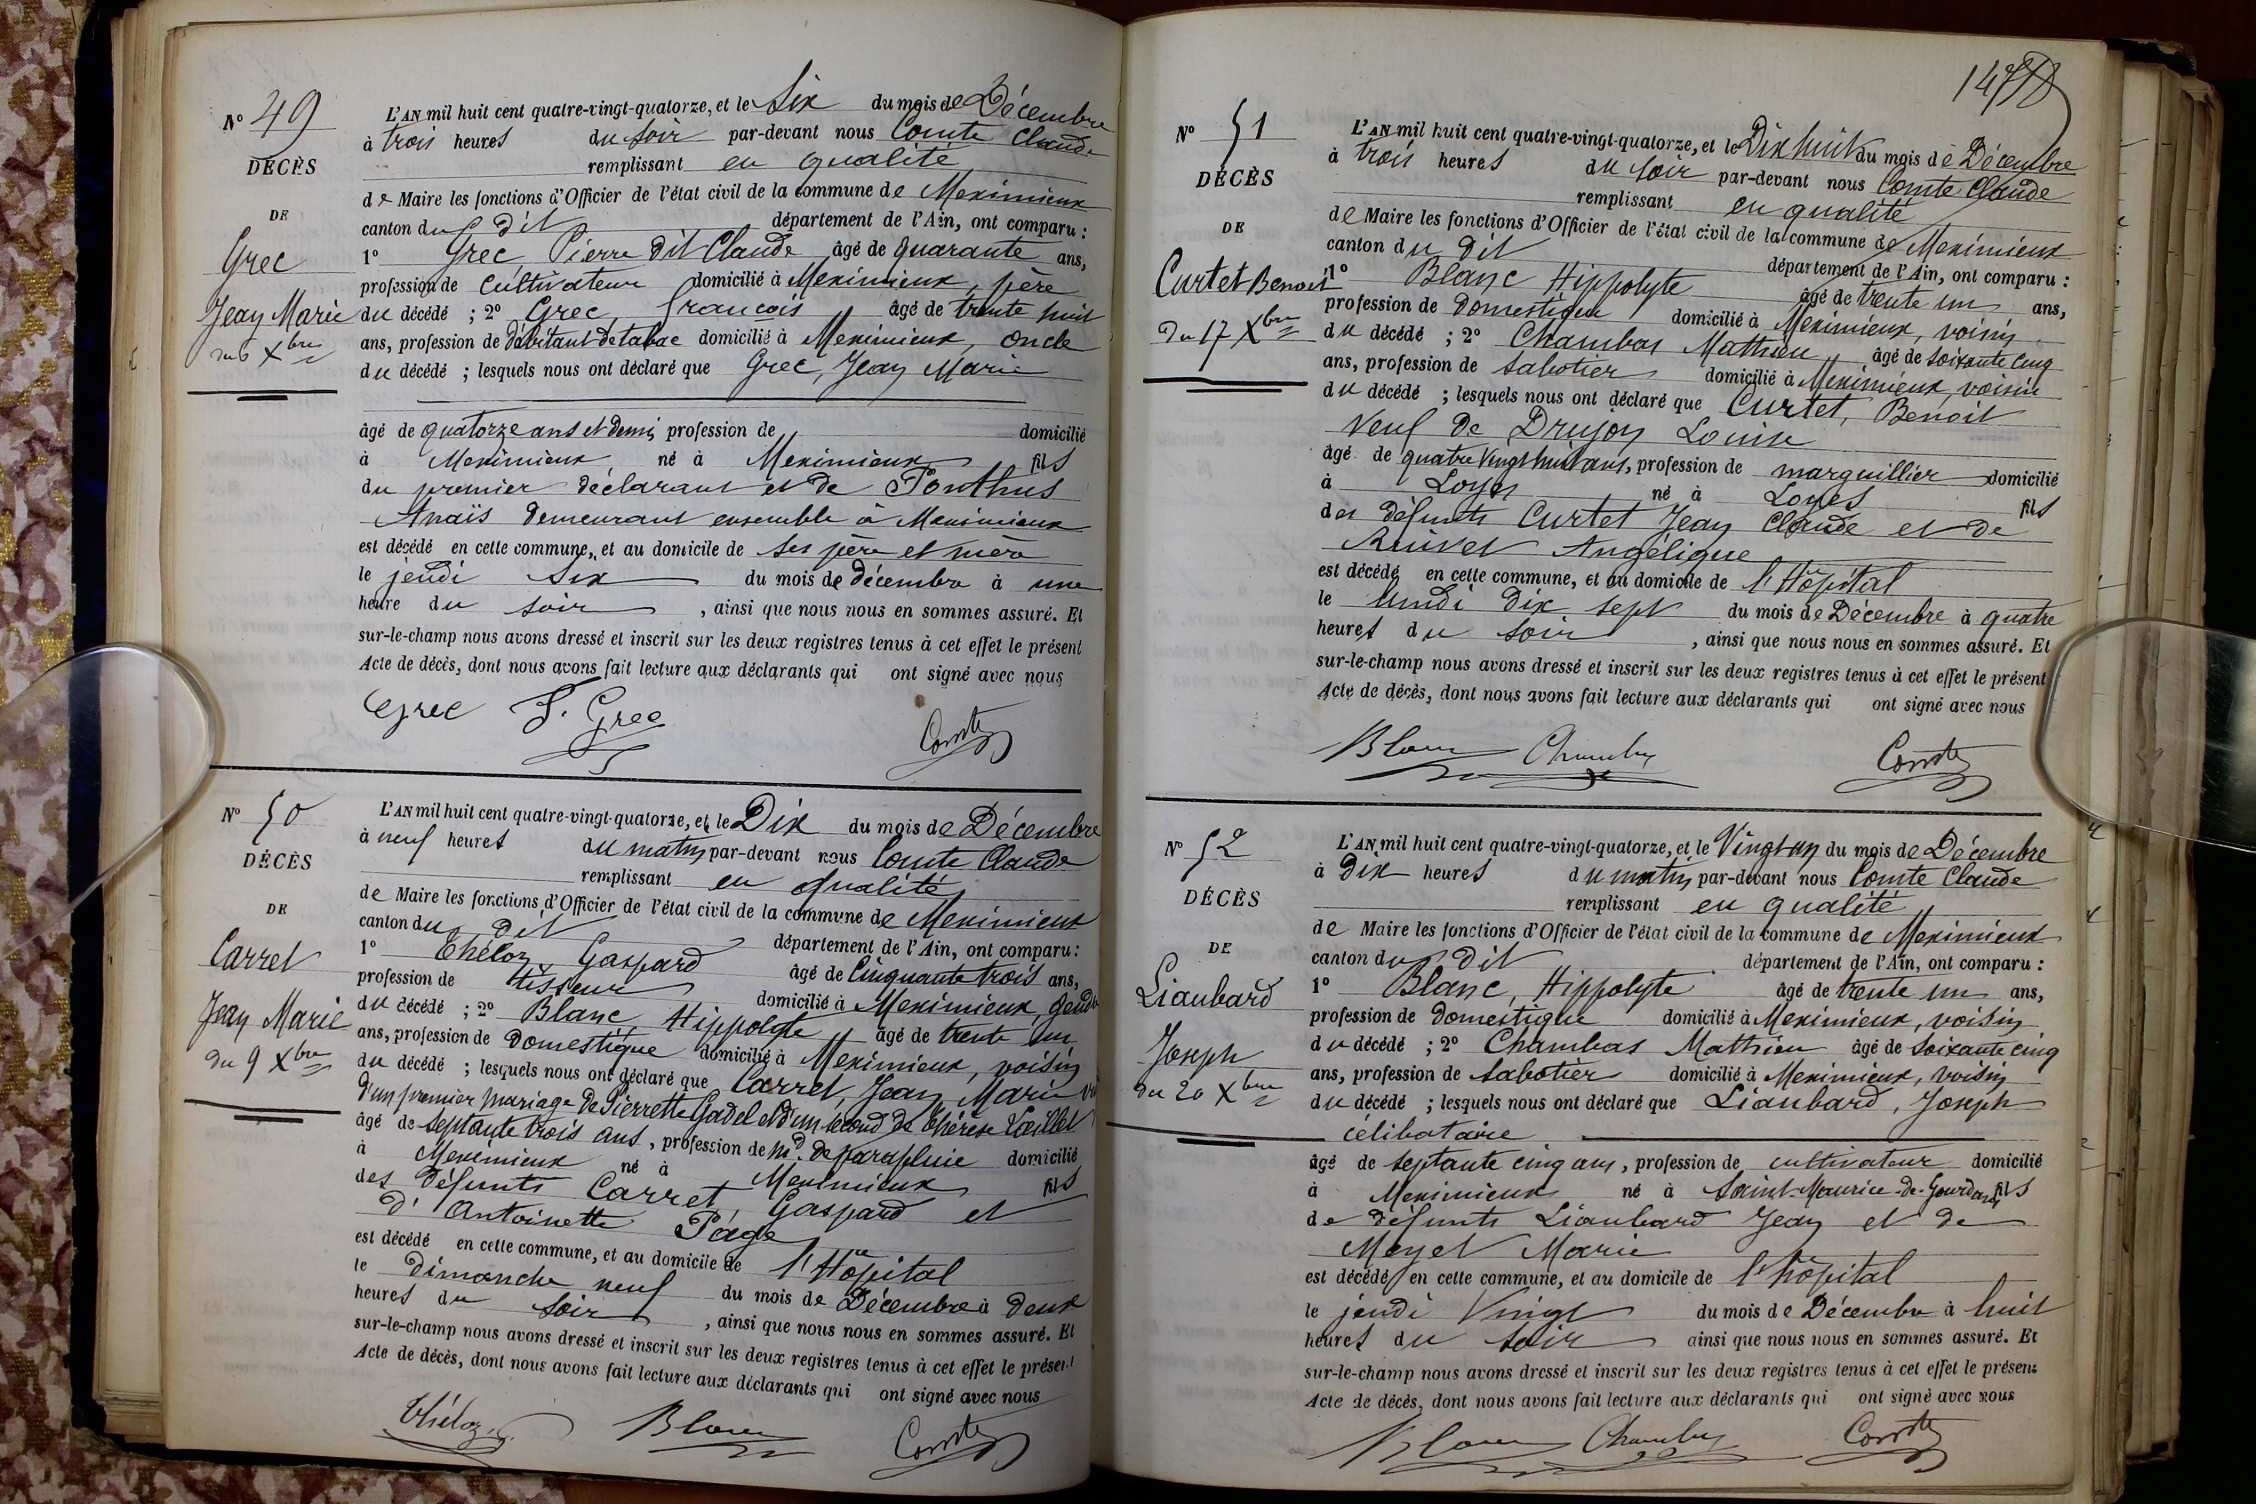 Nº 49
DÉCÈS
DE
Grec
Jean Marie
du 6 Xbre
L'AN mil huit cent quatre-vingt-quatorze, et le Six du mois de Décembre
à trois heures du soir par-devant nous Comte Claude
remplissant en qualité
de Maire les fonctions d'Officier de l'état civil de la commune de Meximieux
canton du dit département de l'Ain, ont comparu :
1º Grec Pierre dit Claude âgé de quarante ans,
profession de cultivateur domicilié à Meximieux, père
du décédé ; 2º Grec, francois âgé de trente huit
ans, profession de débitant de tabac domicilié à Meximieux, oncle
du décédé ; lesquels nous ont déclaré que Grec, Jean Marie
âgé de quatorze ans et demi, profession de domicilié
à Meximieux né à Meximieux fils
du premier déclarant et de Ponthus
Anaïs demeurant ensemble à Meximieux
est décédé en cette commune, et au domicile de ses père et mère
le jeudi Six du mois de décembre à une
heure du soir, ainsi que nous nous en sommes assuré. Et
sur-le-champ nous avons dressé et inscrit sur les deux registres tenus à cet effet le présent
Acte de décès, dont nous avons fait lecture aux déclarants qui ont signé avec nous
Grec F. Grec Comte
Nº 50
DÉCÈS
DE
Carret
Jean Marie
du 9 Xbre
L'AN mil huit cent quatre-vingt-quatorze, et le Dix du mois de Décembre
à neuf heures du matin par-devant nous Comte Claude
remplissant en qualité
de Maire les fonctions d'Officier de l'état civil de la commune de Meximieux
canton du dit département de l'Ain, ont comparu :
1º Théloz Gaspard âgé de Cinquante trois ans,
profession de tisseur domicilié à Meximieux, gendre
du décédé ; 2º Blanc Hippolyte âgé de trente un
ans, profession de domestique domicilié à Meximieux, voisin
du décédé ; lesquels nous ont déclaré que Carret, Jean Marie
d'un premier mariage de Pierrette Gadel et d'un second de Thérèse
âgé de septante trois ans, profession de md. de parapluie domicilié
à Meximieux né à Meximieux fils
des défunts Carret Gaspard et
d'Antoinette Page
est décédé en cette commune, et au domicile de l'Hôpital
le dimanche neuf du mois de Décembre à deux
heures du soir, ainsi que nous nous en sommes assuré. Et
sur-le-champ nous avons dressé et inscrit sur les deux registres tenus à cet effet le présent
Acte de décès, dont nous avons fait lecture aux déclarants qui ont signé avec nous
Théloz Blanc Comte
Nº 51
DÉCÈS
DE
Curtet Benoit
Du 17 Xbre
L'AN mil huit cent quatre-vingt-quatorze, et le Dix huit du mois de Décembre
à trois heures du soir par-devant nous Comte Claude
remplissant en qualité
de Maire les fonctions d'Officier de l'état civil de la commune de Meximieux
canton du dit département de l'Ain, ont comparu :
1º Blanc Hippolyte âgé de trente un ans,
profession de domestique domicilié à Meximieux, voisin
du décédé ; 2º Chambas Mathieu âgé de soixante cinq
ans, profession de sabotier domicilié à Meximieux, voisin
du décédé ; lesquels nous ont déclaré que Curtet, Benoit
Veuf de Drujon Louise
âgé de quatre vingt huit ans, profession de marguillier domicilié
à Loyes né à Loyes fils
des défunts Curtet Jean Claude et de
Angélique
est décédé en cette commune, et au domicile de l'Hôpital
le lundi dix sept du mois de Décembre à quatre
heures du soir, ainsi que nous nous en sommes assuré. Et
sur-le-champ nous avons dressé et inscrit sur les deux registres tenus à cet effet le présent
Acte de décès, dont nous avons fait lecture aux déclarants qui ont signé avec nous
Blanc Chambas Comte
Nº 52
DÉCÈS
DE
Liaubard
Joseph
du 20 Xbre
L'AN mil huit cent quatre-vingt-quatorze, et le Vingt un du mois de Décembre
à Dix heures du matin par-devant nous Comte Claude
remplissant en qualité
de Maire les fonctions d'Officier de l'état civil de la commune de Meximieux
canton du dit département de l'Ain, ont comparu :
1º Blanc, Hippolyte âgé de trente un ans,
profession de domestique domicilié à Meximieux, voisin
du décédé ; 2º Chambas Mathieu âgé de soixante cinq
ans, profession de sabotier domicilié à Meximieux, voisin
du décédé ; lesquels nous ont déclaré que Liaubard, Joseph
célibataire
âgé de septante cinq ans, profession de cultivateur domicilié
à Meximieux né à Saint-Maurice-de-Gourdans fils
de défunts Liaubard Jean et de
Meyet Marie
est décédé en cette commune, et au domicile de l'hôpital
le jeudi Vingt du mois de Décembre à huit
heures du soir ainsi que nous nous en sommes assuré. Et
sur-le-champ nous avons dressé et inscrit sur les deux registres tenus à cet effet le présent
Acte de décès, dont nous avons fait lecture aux déclarants qui ont signé avec nous
Blanc Chambas Comte